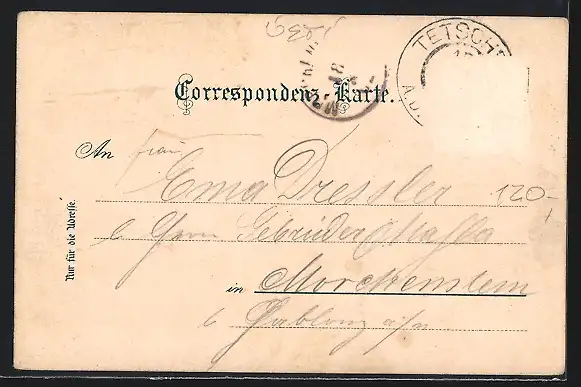 TETSCH
Correspondenz-Karte.
An Frau
Ema Dressler
120-
b Herrn Gebrüder
in Morchenstern
b Gablonz a/n
Nur für die Adresse.